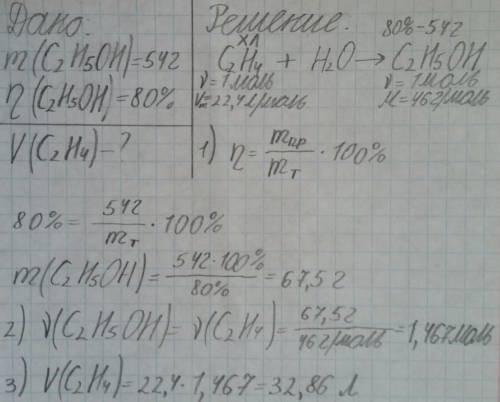 Дано:
m(C₂H₅OH)=54г
η(C₂H₅OH)=80%
V(C₂H₄)-?
Решение.
80%-54г
Xл
C₂H₄ + H₂O → C₂H₅OH
ν=1моль ν=1моль
Vm=22,4л/моль M=46г/моль
1) η = mпр/mт · 100%
80% = 54г/mт · 100%
m(C₂H₅OH) = 54г·100%/80% = 67,5г
2) ν(C₂H₅OH) = ν(C₂H₄) = 67,5г/46г/моль = 1,467моль
3) V(C₂H₄) = 22,4 · 1,467 = 32,86 л